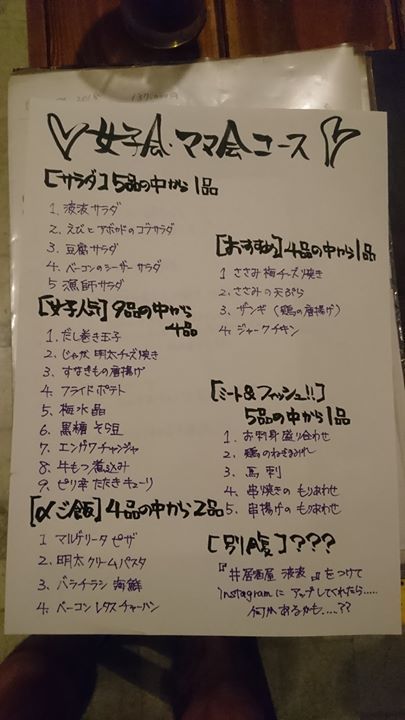 女子会・ママ会コース
[サラダ] 5品の中から1品
1. 液液サラダ
2. えびとアボカドのコブサラダ
3. 豆腐サラダ
4. ベーコンのシーザーサラダ
5 漁師サラダ
[女子人気] 9品の中から
4品
1. だし巻き玉子
2. じゃが明太チーズ焼き
3. すなぎもの唐揚げ
4. フライドポテト
5. 梅水晶
6. 黒糖そら豆
7. エンガワチャンジャ
8. 牛もつ煮込み
9. ピリ辛たたきキューリ
[〆ご飯] 4品の中から2品
1 マルゲリータピザ
2. 明太クリームパスタ
3. バラチラシ 海鮮
4. ベーコンレタスチャーハン
[おすすめ] 4品の中から1品
1 ささみ梅チーズ焼き
2. ささみの天ぷら
3. ザンギ (鶏の唐揚げ)
4. ジャークチキン
[ミート&フィッシュ!!]
5品の中から1品
1 お刺身盛り合わせ
2. 鶏のねぎまみれ
3. 馬刺
4. 串焼きのもりあわせ
5. 串揚げのもりあわせ
[別腹]???
『#居酒屋 液液』をつけて
instagramに アップしてくれたら.....
何かあるかも.....??